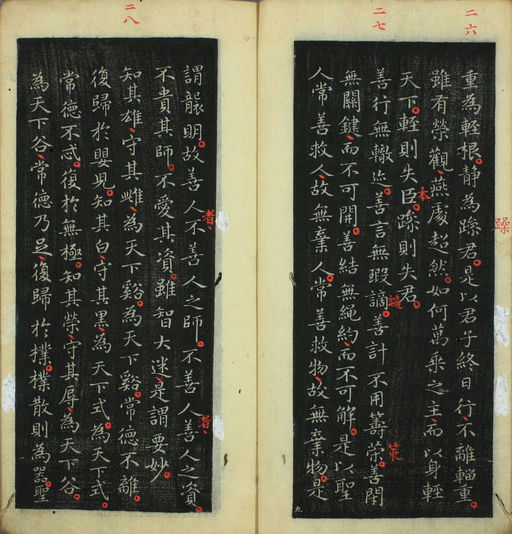 二六
重為輊根靜為躁君是以君子終日行不離輜重
躁
雖有榮觀燕處超然如何萬乘之主而以身輊
天下輊則失臣躁則失君
本
二七
善行無轍迹善言無瑕謫善計不用籌策善閇
策
無關鍵而不可開善結無繩約而不可解是以聖
人常善救人故無棄人常善救物故無棄物是
九
謂襲明故善人不善人之師不善人善人之資
者
者
不貴其師不愛其資雖智大迷是謂要妙
二八
知其雄守其雌為天下谿為天下谿常德不離
復歸於嬰兒知其白守其黑為天下式為天下式
常德不忒復於無極知其榮守其辱為天下谷
為天下谷常德乃足復歸於樸樸散則為器聖